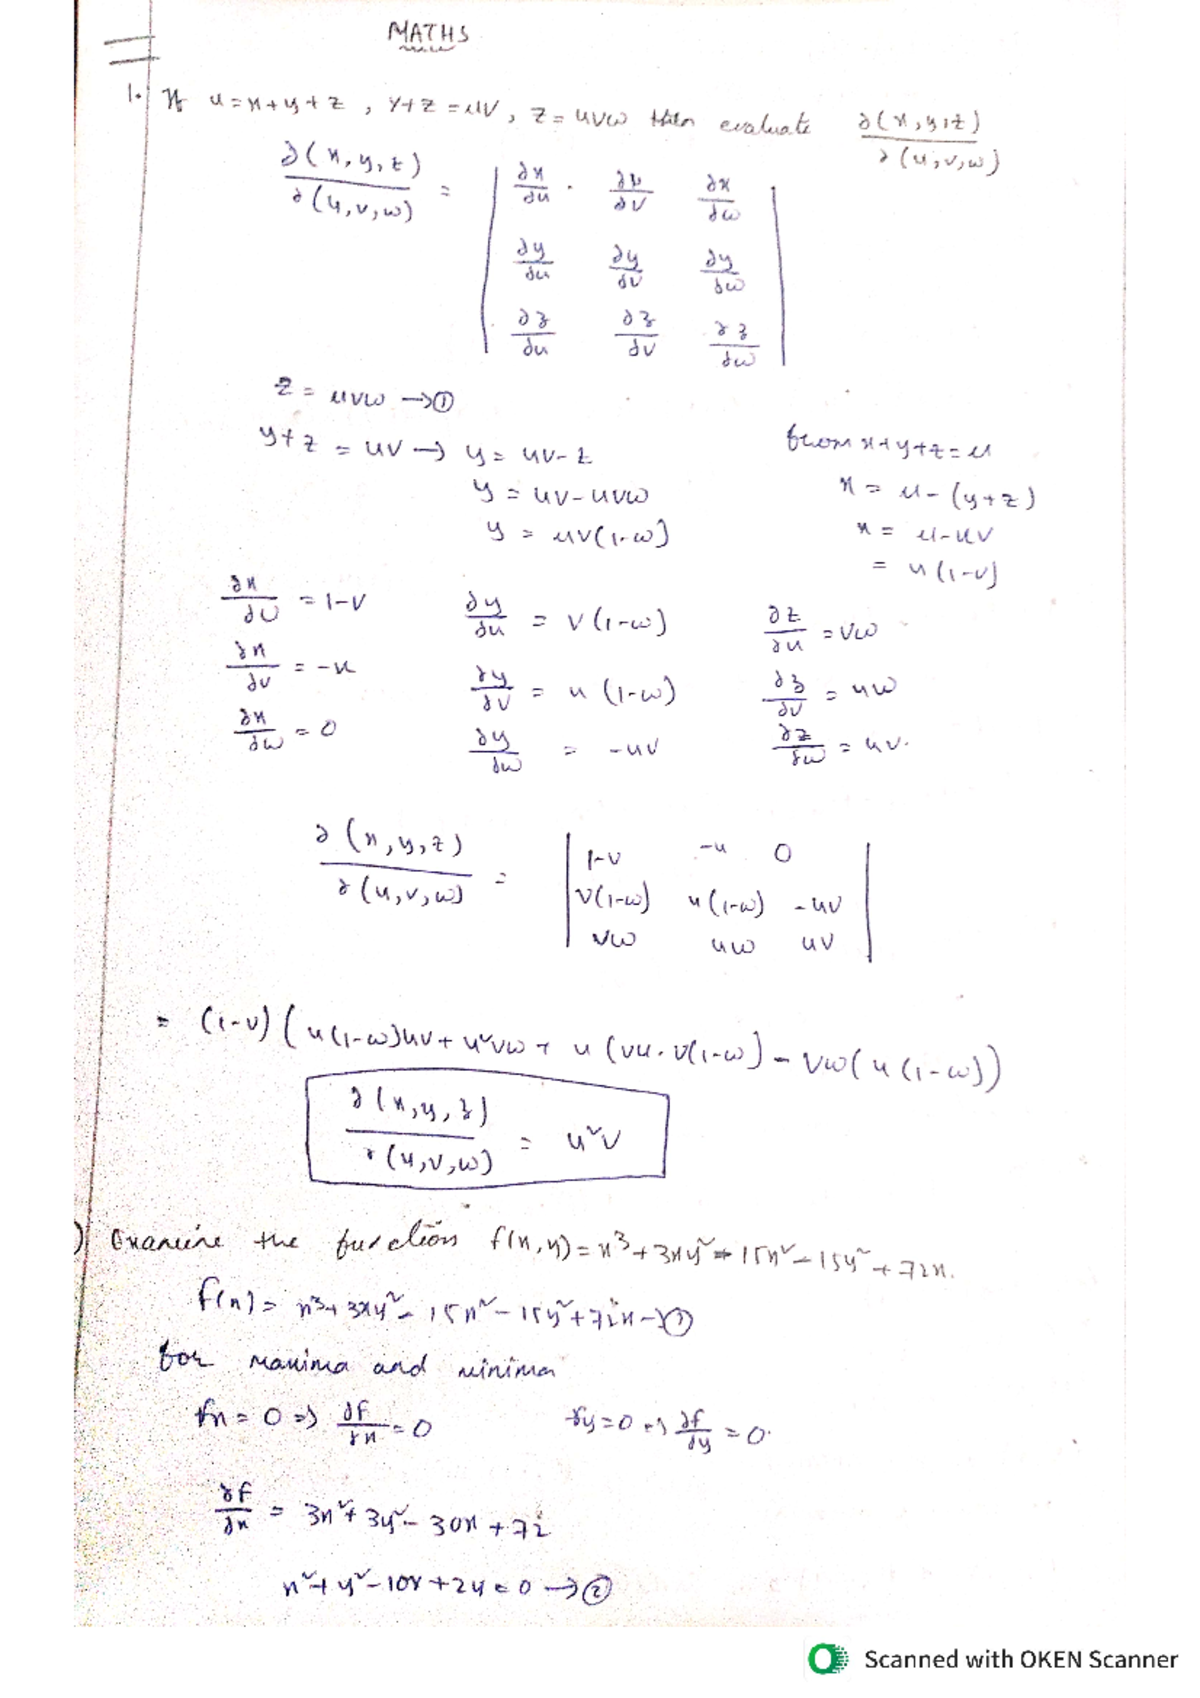 MATHS
1. If u = x+y+z , y+z = uv , z = uvw then evaluate ∂(x,y,z)/∂(u,v,w)
∂(x,y,z)/∂(u,v,w) = | ∂x/∂u . ∂x/∂v ∂x/∂w |
∂y/∂u ∂y/∂v ∂y/∂w
∂z/∂u ∂z/∂v ∂z/∂w
z = uvw →①
y+z = uv → y = uv-z from x+y+z = u
y = uv-uvw x = u-(y+z)
y = uv(1-w) x = u-uv
= u(1-v)
∂x/∂u = 1-v ∂y/∂u = v(1-w) ∂z/∂u = vw
∂x/∂v = -u ∂y/∂v = u(1-w) ∂z/∂v = uw
∂x/∂w = 0 ∂y/∂w = -uv ∂z/∂w = uv.
∂(x,y,z)/∂(u,v,w) = | 1-v -u 0 |
v(1-w) u(1-w) -uv
vw uw uv
= (1-v)(u(1-w)uv + u²vw + u(vu.v(1-w) - vw(u(1-w))
∂(x,y,z)/∂(u,v,w) = u²v
) Examine the function f(x,y) = x³+3xy²-15x²-15y²+72x.
f(x) = x³+3xy²-15x²-15y²+72x →①
for maxima and minima
fx = 0 ⇒ ∂f/∂x = 0 fy = 0 ⇒ ∂f/∂y = 0.
∂f/∂x = 3x²+3y²-30x+72
x²+y²-10x+24 = 0 →②
Scanned with OKEN Scanner